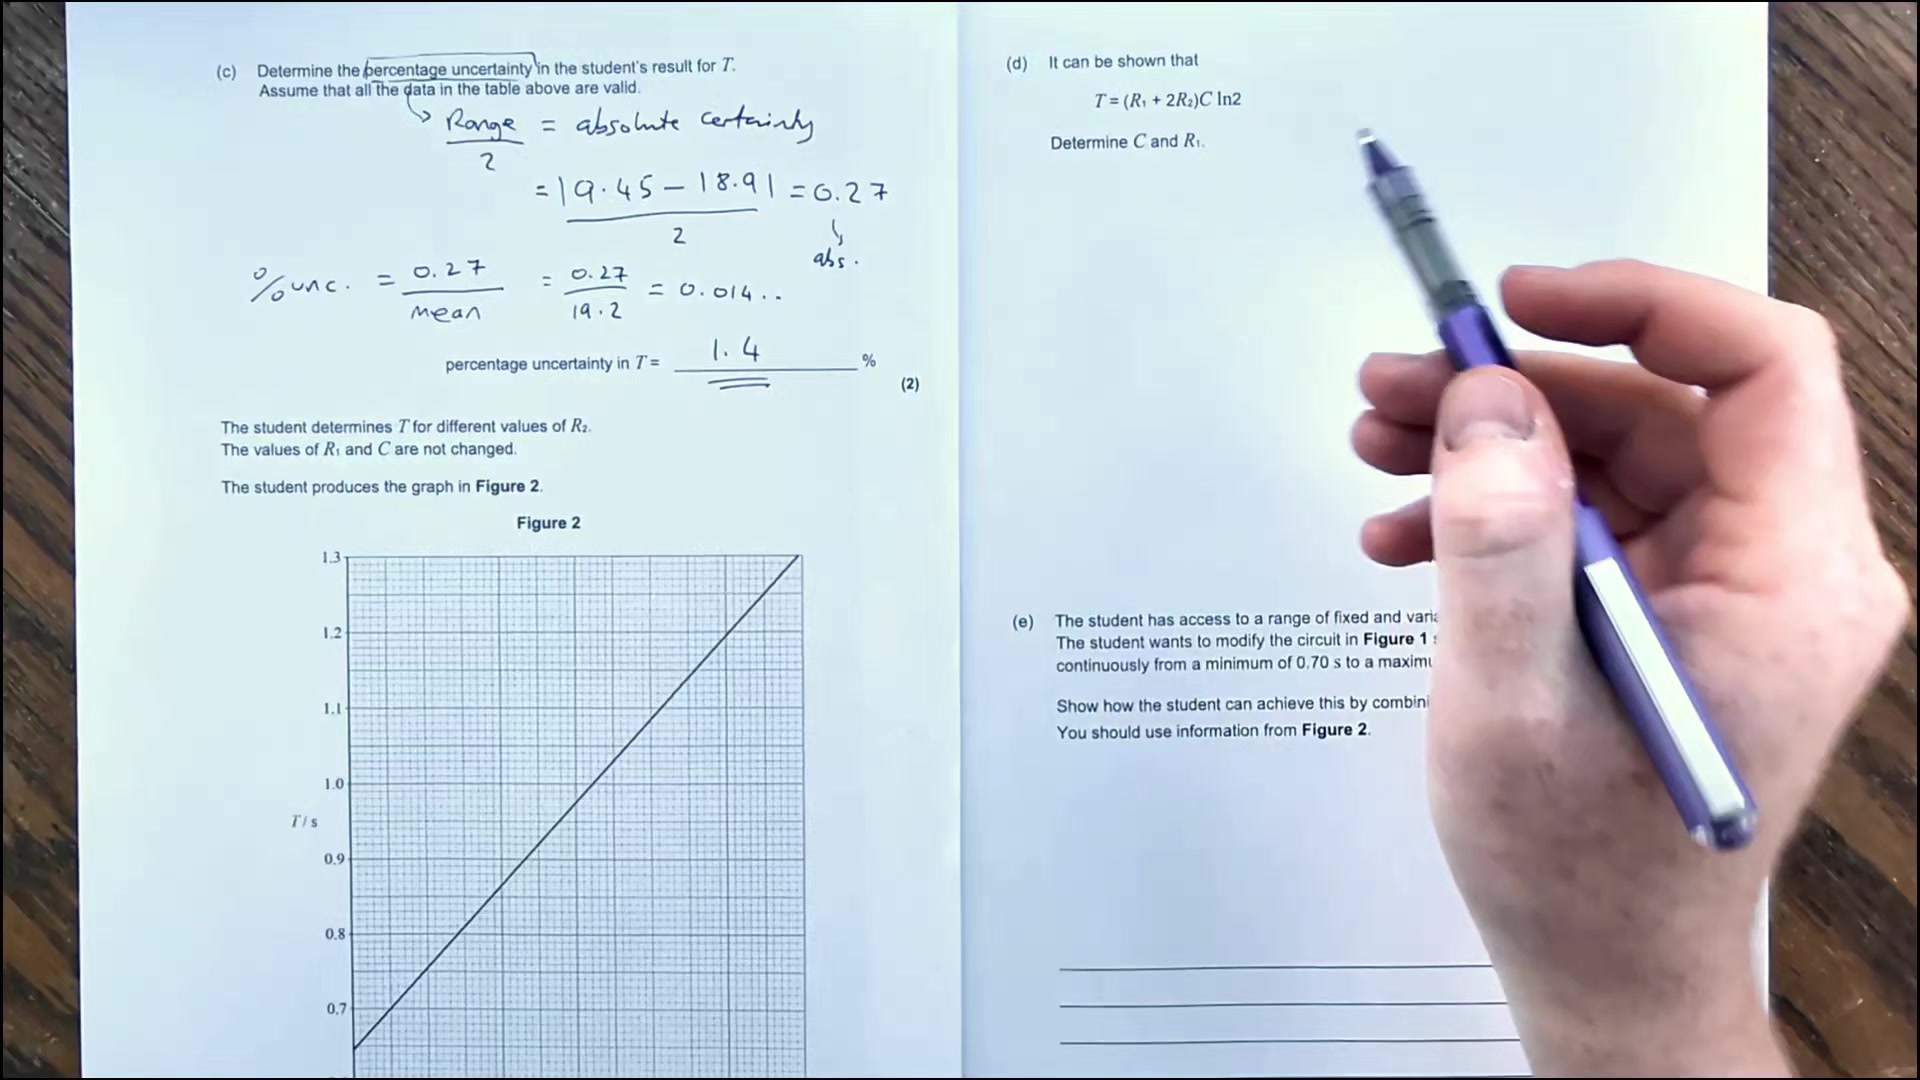 (c) Determine the percentage uncertainty in the student's result for T.
Assume that all the data in the table above are valid.
Range = absolute certainty
2
= 19.45 - 18.91 = 0.27
2
abs.
% unc. = 0.27 = 0.27 = 0.014..
mean 19.2
percentage uncertainty in T = 1.4 %
(2)
The student determines T for different values of R₂.
The values of R₁ and C are not changed.
The student produces the graph in Figure 2.
Figure 2
1.3
1.2
1.1
1.0
T / s
0.9
0.8
0.7
(d) It can be shown that
T = (R₁ + 2R₂)C ln2
Determine C and R₁.
(e) The student has access to a range of fixed and
The student wants to modify the circuit in Figure 1
continuously from a minimum of 0.70 s to a
Show how the student can achieve this by
You should use information from Figure 2.